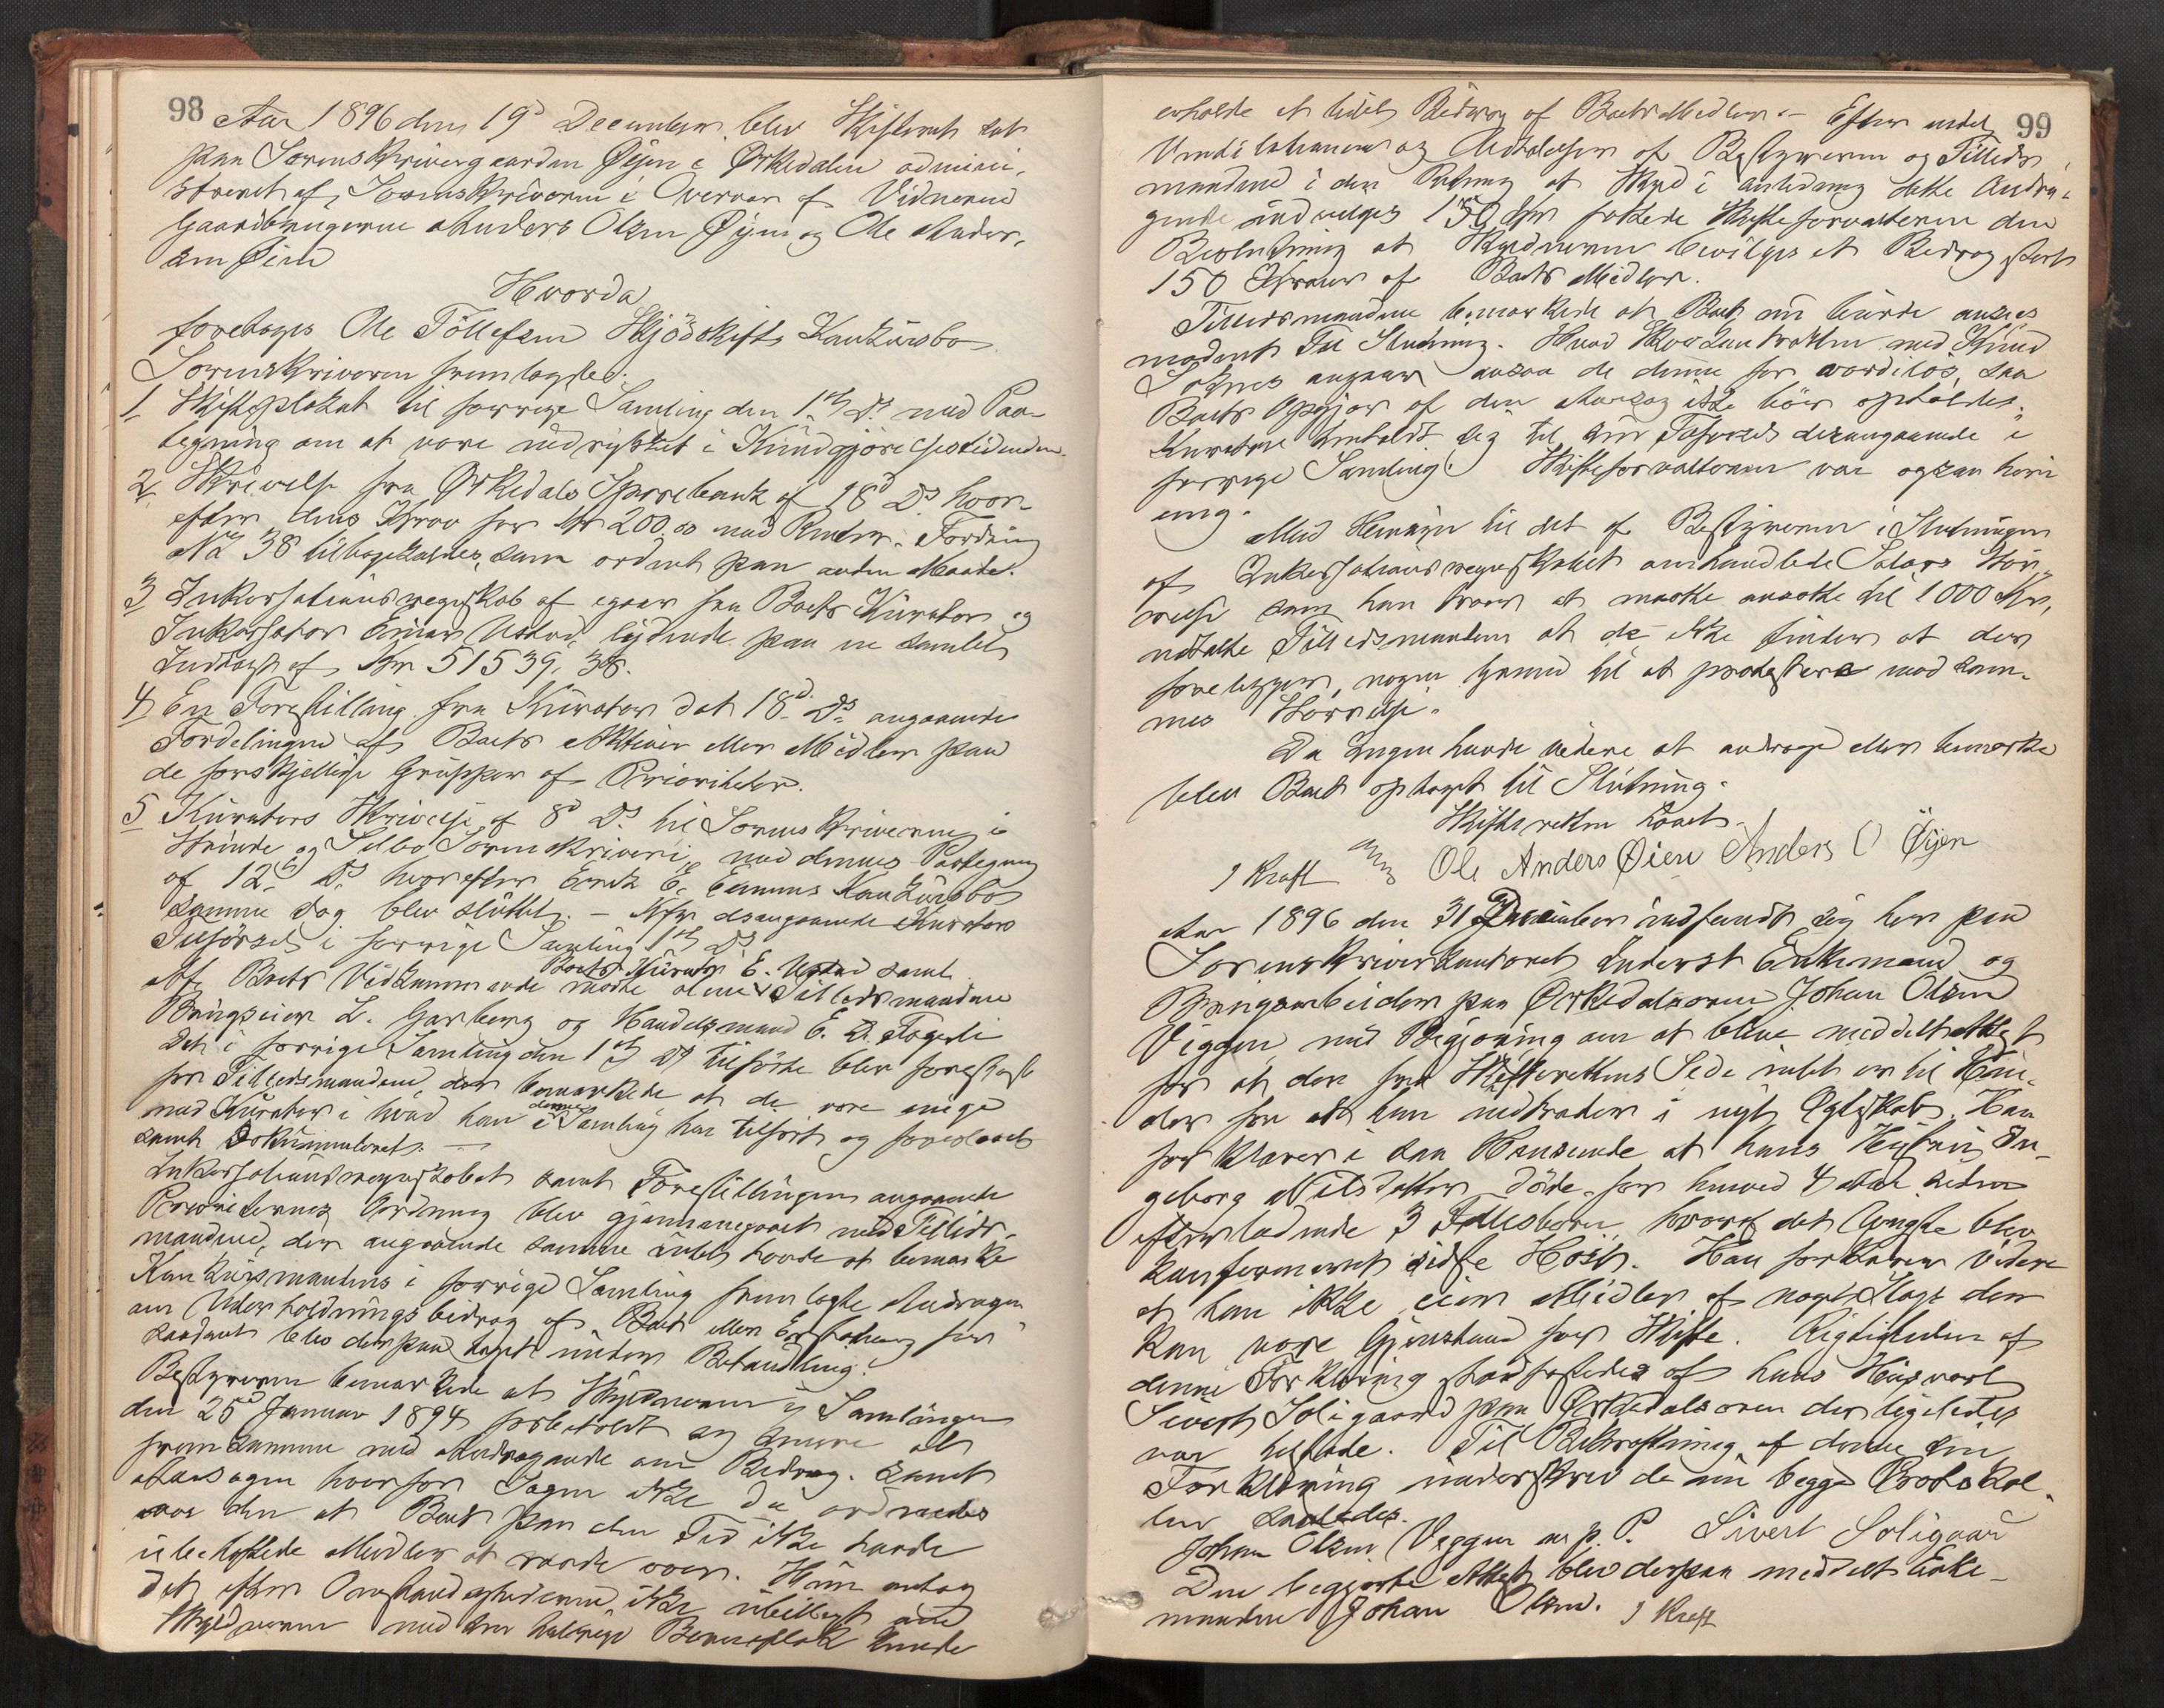 98
Aar 1896 den 19d December blev Skifteret sat
paa Sorenskrivergaarden Øyen i Ørkedalen admini-
streret af Sorenskriveren i Overvær af Vidnerne
Gaardbrugerne Anders Olsen Øyen og Ole Anders-
sen Øien
Hvorda
foretoges Ole Töllefsen Skjödskifts Konkürsbo
Sorenskriveren fremlagde:
1 Skifteplakat til forrige Samling den 1ste Ds med Paa-
tegning om at være indrykket i Kündgjörelsestidenden.
2 Skrivelse fra Ørkedals Sparebank af 18d Ds hvor-
efter dens Krav for Kr 200,00 med Renter. Fordring
No 38 tilbagekaldes, som ordnet paa anden Maade.
3 Inkassationsregnskab af igaar fra Boets Kürator og
Inkassator Einar Ustad, lydende paa en samlet
Indtægt af Kr 51539,38.
4 En Forestilling fra Kürator dat 18d Ds angaaende
Fordelingen af Boets Aktiver eller Midler paa
de forskjellige Grüpper af Prioriteter.
5 Kürators Skrivelse af 8d Ds til Sorenskriveren i
Strinde og Selbo Sorenskriveri, med dennes Paategning
af 12d Ds hvorefter E. Konkürsbo
samme Dag blev slüttet. – Kfr desangaaende Kurators
Tilförsel i forrige Samling 1ste Ds
Boets Kürator E. Ustad samt
Af Boets Vedkommende mödte alene Tillidsmændene
Brügseier L. Garberg og Handelsmand E. D. Fagerli
Det i forrige Samling den 1ste Ds tilförte blev forelæst
for Tillidsmændene, der bemærkede at de vare enige
med Kürator i hvad han i denne Samling har tilført og foreslaaet
samt Dokümenteret. —
Inkassationsregnskabet samt Forestillingen angaaende
Prioriteternes Ordning blev gjennemgaaet med Tillids-
mændene, der angaaende samme intet havde at bemærke
Konkürsmandens i forrige Samling fremlagte Andragen
om Underholdningsbidrag af Boet eller Erstatning for
saadant blev derpaa taget ünder Behandling.
Bestyreren bemærkede at Skyldneren i Samlingen
den 25d Januar 1894 forbeholdt sig senere at
fremkomme med Andragende om Bidrag. samt
Aarsagen hvorfor Sagen ikke da ordnedes
var den at Boet paa den Tid ikke havde
übeheftede Midler at raade over. Han antog
det efter Omstændighederne ikke übilligt om
Skyldneren med sin talrige Børneflok kunde
99
erholde et lidet Bidrag af Boets Midler. – Efter endel
Ventilationer og Udtalelser af Bestyreren og Tillids-
mændene i den Retning at Skyld i anledning dette Andra-
gende indvilges 150 Kr fattede Skifteforvalteren den
Beslutning at Skyldneren bevilges et Bidrag stort
150 Kroner af Boets Midler.
Tillidsmændene bemærkede at Boet nü bürde ansees
modent til Slutning. Hvad Skovkontrakten med Knud
Solnes angaar ansaa de denne for værdiløs, saa
Boets Opgjør af den Aarsag ikke bör opholdes.
Kuratoren henholdt sig til sin Tilførsel desangaaende i
forrige Samling. Skifteforvalteren var ogsaa heri
enig.
Med Hensyn til det af Bestyreren i Slutningen
af Inkassationsregnskabet omhandlede Salærs Stör-
relse som han troer at maatte ansætte til 1000 Kr,
udtalte Tillidsmændene at de ikke finder at der
foreligger nogen Grund til at protestere mod sam-
mes Størrelse.
Da Ingen havde videre at andrage eller bemærke
blev Boet optaget til Slütning.
Skifteretten hævet.
J Kraft Ole Anders Øien Anders O Öyen
Aar 1896 den 31 December indfandt sig her paa
Sorenskriverkontoret Inderst Enkemand og
Bryggearbeider paa Ørkedalsøren Johan Olsen
Viggen med Begjæring om at blive meddelt Attest
for at der fra Skifterettens Side intet er til Hin-
der for at han indtræder i nyt Ægteskab. Han
forklarer i saa Henseende at hans Hüstrü In-
geborg Nilsdatter döde for henved 4 Aar siden
efterladende 3 Fællesbørn, hvoraf det Yngste blev
konfermeret sidste Høst. Han forklarer videre
at han ikke eier Midler af noget Slags der
kan være Gjenstand for Skifte. Rigtigheden af
denne Forklaring stadfæstedes af hans Hüsvært
Sivert Soligaard paa Ørkedalsøren der ligeledes
var tilstede. Til Bekræftning af denne sin
Forklaring ünderskrev de nü begge Protokol-
len saaledes.
Johan Olsen Veggen m.p.P. Sivert Soligaard
Den begjærte Attest blev derpaa meddelt Enke-
manden Johan Olsen. J Kraft